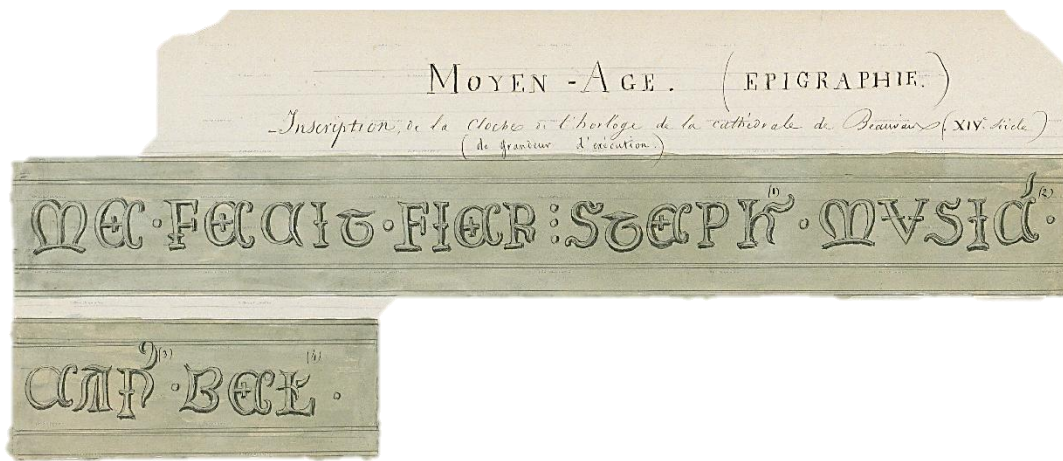 MOYEN - AGE. (EPIGRAPHIE.)
- Inscription, de la cloche de l'horloge de la cathédrale de Beauvais (XIVe siècle)
(de grandeur d'exécution.)
ME · FECIT · FIER ⁝ STEPH (1) · MVSIC (2) ·
CAN (3) · BEL (4) ·